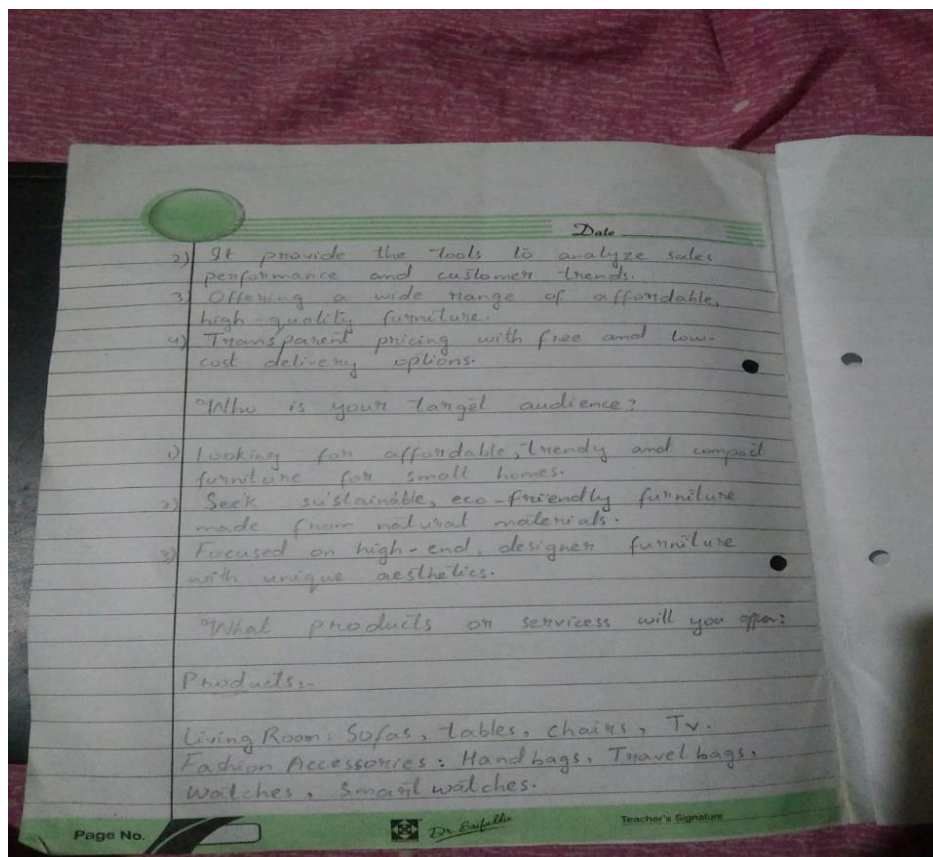 Date
2) It provide the tools to analyze sales
performance and customer trends.
3) Offering a wide range of affordable,
high-quality furniture.
4) Transparent pricing with free and low-
cost delivery options.
Who is your target audience?
1) Looking for affordable, trendy and compact
furniture for small homes.
2) Seek sustainable, eco-friendly furniture
made from natural materials.
3) Focused on high-end, designer furniture
with unique aesthetics.
What products or servicess will you offer:
Products:-
Living Room: Sofas, tables, chairs, Tv.
Fashion Accessories: Hand bags, Travel bags,
Watches, Smart watches.
Page No.
Dr Saifuddin
Teacher's Signature